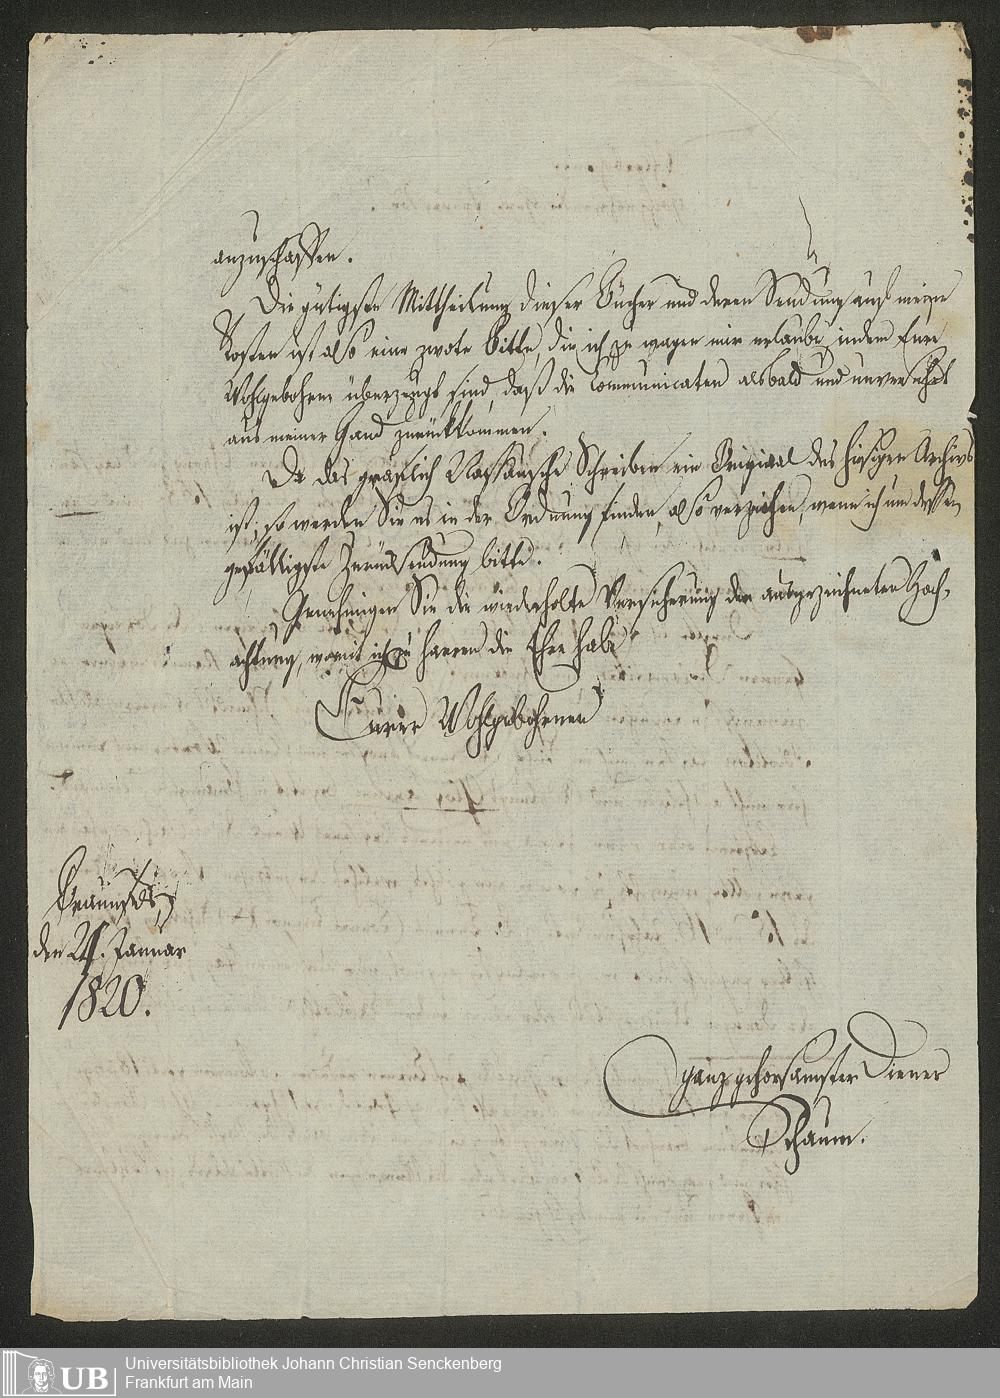 anzuschaffen.
Die gütigste Mittheilung dieser Bücher und deren Sendung auf meine
Kosten ist also eine zwote Bitte, die ich zu wagen mir erlaube, indem Eure
Wohlgebohren überzeugt sind, daß die Communicaten alsbald und unversehrt
aus meiner Hand zurückkommen.
Da das gräflich Nassauische Schreiben ein Original des hiesigen Archivs
ist, so werden Sie es in der Ordnung finden, also verzeihen, wenn ich um dessen
gefälligste Zurücksendung bitte.
Genehmigen Sie die wiederholte Versicherung der ausgezeichneten Hoch-
achtung, womit ich zu harren die Ehre habe
Eurer Wohlgebohren
Braunfels,
den Januar
1820.
ganz gehorsamster Diener
Schaum.
UB
Universitätsbibliothek Johann Christian Senckenberg
Frankfurt am Main